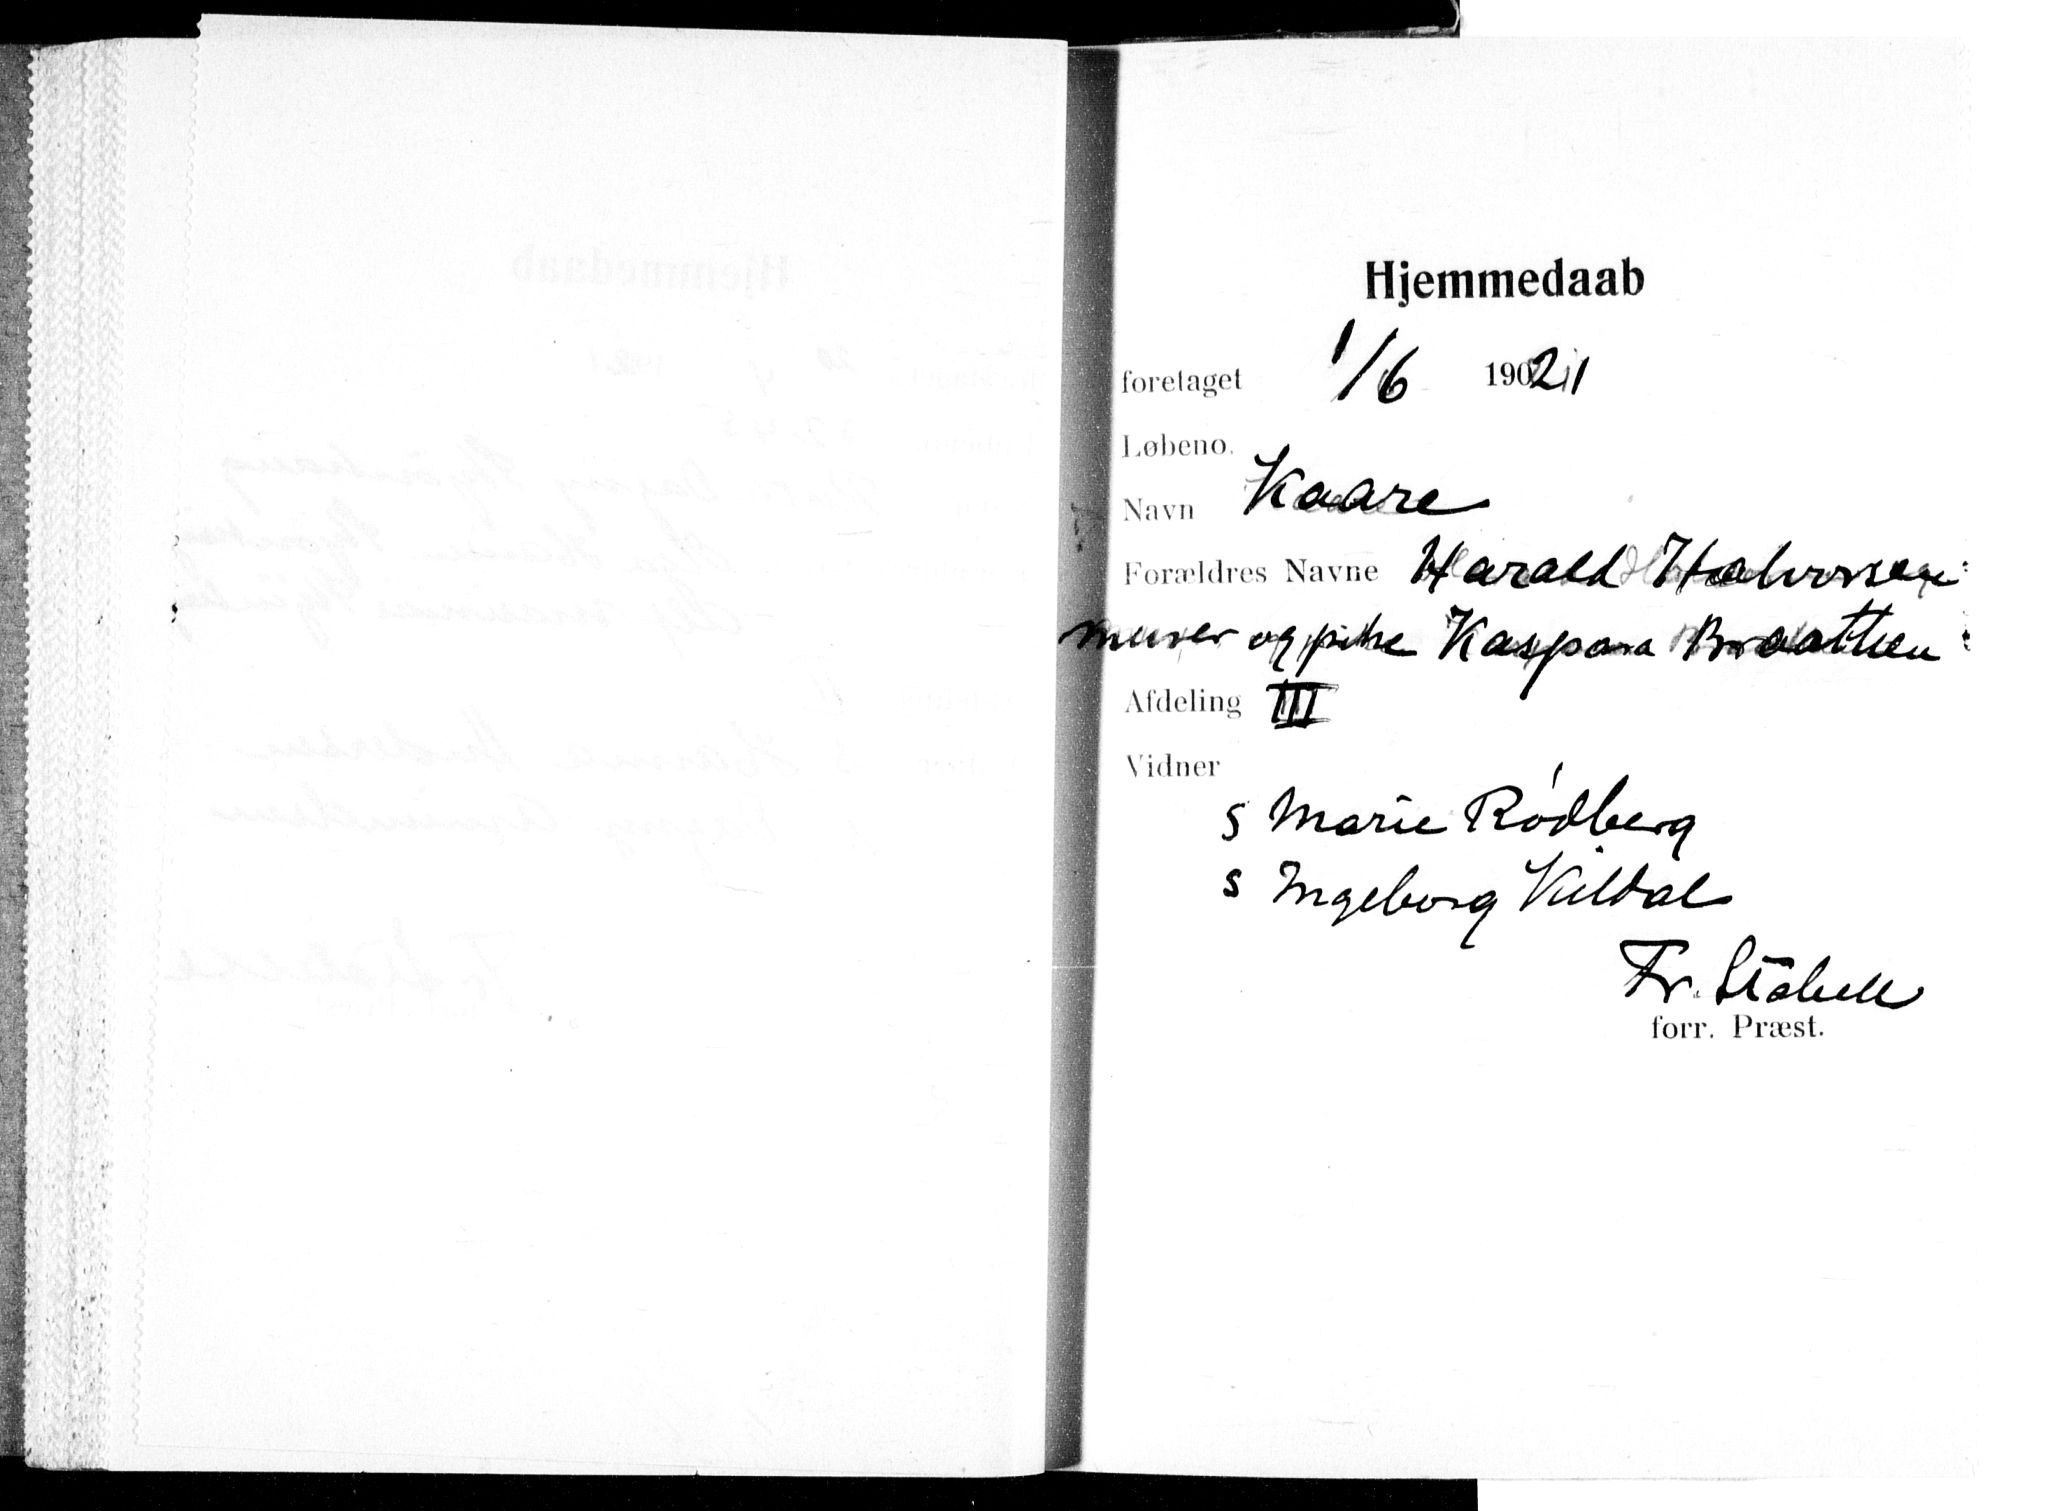 Hjemmedaab
foretaget 1/6 1921
Løbeno.
Navn Kaare
Forældres Navne Harald Halvorsen
murer og pike Kaspara Braathen
Afdeling III
Vidner
s Marie Rødberg
s Ingeborg Kildal
Fr. Stabell
forr. Præst.